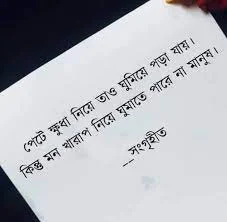 পেটে ক্ষুধা নিয়ে তাও ঘুমিয়ে পড়া যায়।
কিন্তু মন খারাপ নিয়ে ঘুমাতে পারে না মানুষ।
__সংগৃহীত